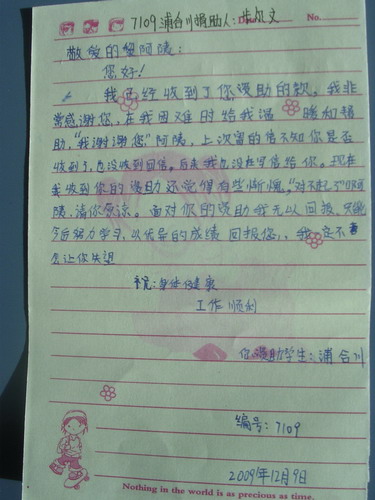 No.
7109浦合川捐助人:
敬爱的黎阿姨:
您好!
我已经收到了您资助的款,我非
常感谢您,在我困难时给我温暖和帮
助,"我谢谢您"阿姨,上次写的信不知你是否
收到了,也没收到回信。后来我也没在写信给你。现在
我收到你的资助还觉得有些惭愧,"对不起了"阿
姨,请你原谅。面对你的资助我无以回报,只能
今后努力学习,以优异的成绩回报您,我定不
会让你失望
祝:身体健康
工作顺利
你资助学生:浦合川
编号:7109
2009年12月9日
Nothing in the world is as precious as time.